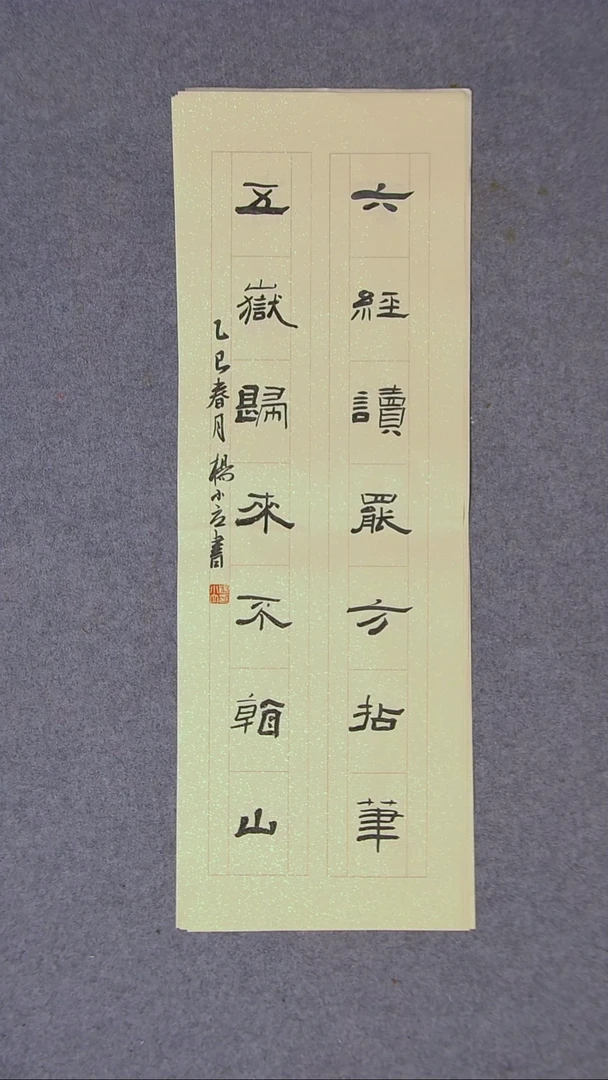 六經讀罷方拈筆
五嶽歸來不看山
乙巳春月 楊小立書